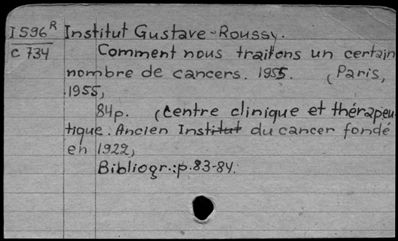 I596R Institut Gustave-Roussy.
C 734 Comment nous traitons un certain
nombre de cancers. 1955. (Paris,
1955,
84p. (Centre clinique et thérapeu
tique. Ancien Institut du cancer fondé
en 1922,
Bibliogr.:p.83-84.